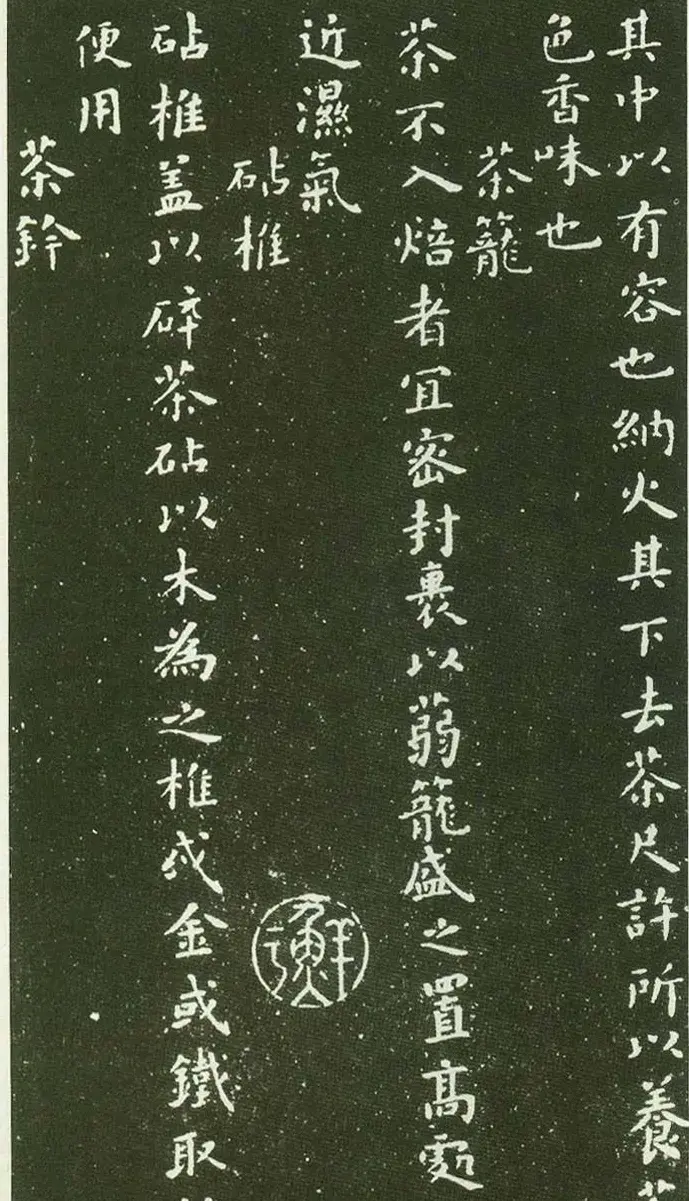 其中以有容也納火其下去茶尺許所以養
色香味也
茶籠
茶不入焙者冝密封裹以蒻籠盛之置髙處
近濕氣
砧椎
砧椎盖以碎茶砧以木為之椎或金或鐵取
便用
茶鈐